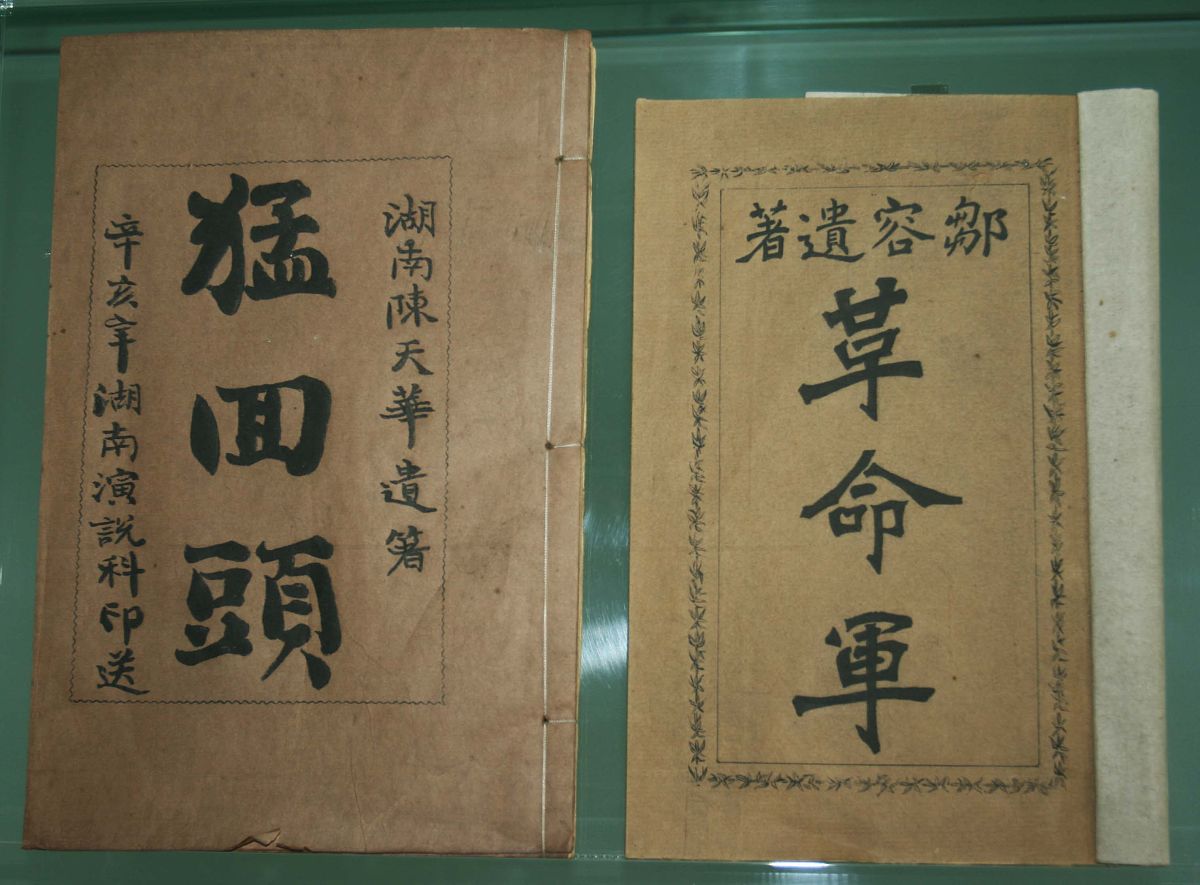 湖南陳天華遺箸
猛回頭
辛亥年湖南演說科印送
鄒容遺著
革命軍